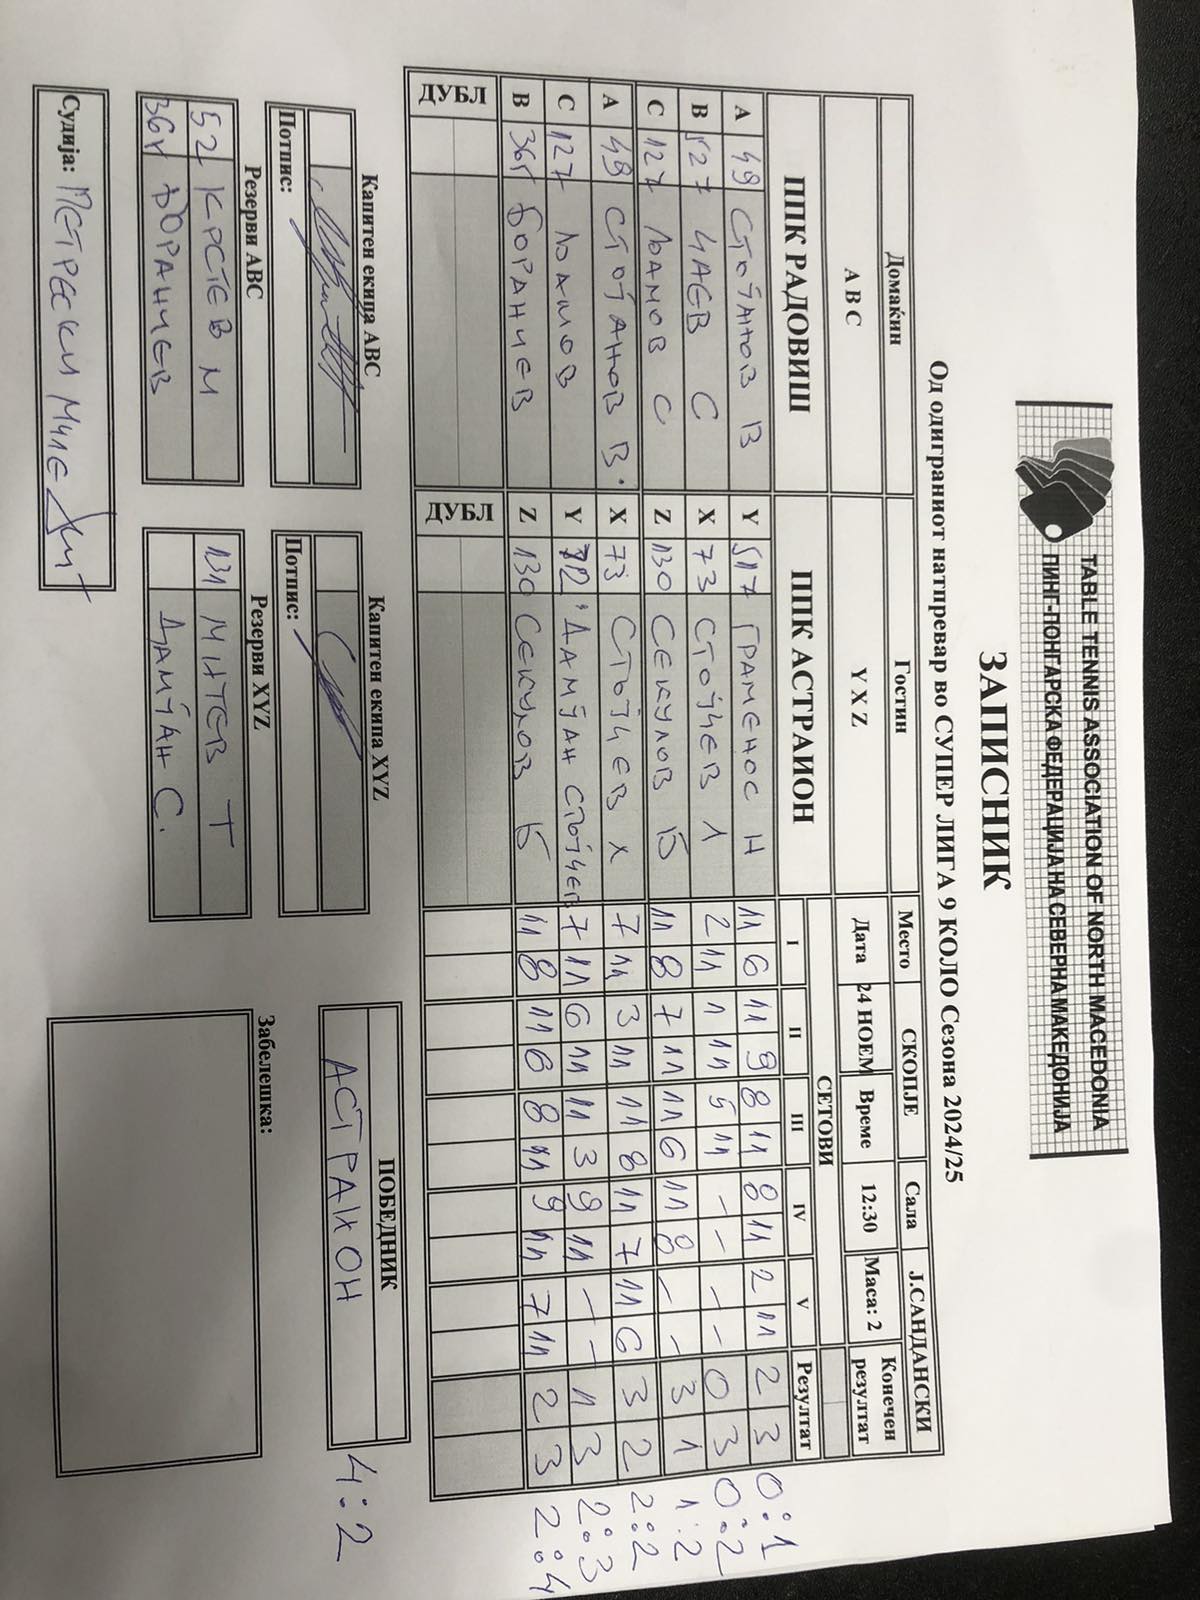 TABLE TENNIS ASSOCIATION OF NORTH MACEDONIA
ПИНГ-ПОНГАРСКА ФЕДЕРАЦИЈА НА СЕВЕРНА МАКЕДОНИЈА
ЗАПИСНИК
Од одиграниот натпревар во СУПЕР ЛИГА 9 КОЛО Сезона 2024/25
Домаќин Гостин Место СКОПЈЕ Сала Ј.САНДАНСКИ
А В С Y X Z Дата 24 НОЕМ Време 12:30 Маса: 2 Конечен резултат
ППК РАДОВИШ ППК АСТРАИОН СЕТОВИ
I II III IV V Резултат
A 49 СТОЈАНОВ В Y 517 ГРАМЕНОС Н 11 6 11 9 8 11 8 11 2 11 2 3 0:1
B 527 ЧАЕВ С X 73 СТОЈЧЕВ Л 2 11 1 11 5 11 - - - - 0 3 0:2
C 127 ЛАМОВ С Z 130 СЕКУЛОВ Б 11 8 7 11 11 6 11 8 - - 3 1 1:2
A 49 СТОЈАНОВ В. X 73 СТОЈЧЕВ Х 7 11 3 11 11 8 11 7 11 6 3 2 2:2
C 127 ЛАМОВ Y ДАМЈАН СТОЈЧЕВ 7 11 6 11 11 3 9 11 - - 1 3 2:3
B БОРАНЧЕВ Z 130 СЕКУЛОВ Б 11 8 11 6 8 11 9 11 7 11 2 3 2:4
ДУБЛ ДУБЛ
Капитен екипа ABC Капитен екипа XYZ ПОБЕДНИК
Потпис: Потпис: АСТРАИОН 4:2
Резерви ABC Резерви XYZ Забелешка:
52 КРСТЕВ М 131 МИТЕВ Т
БОРАНЧЕВ ДАМЈАН С.
Судија: ПЕТРЕСКИ МИЛЕ